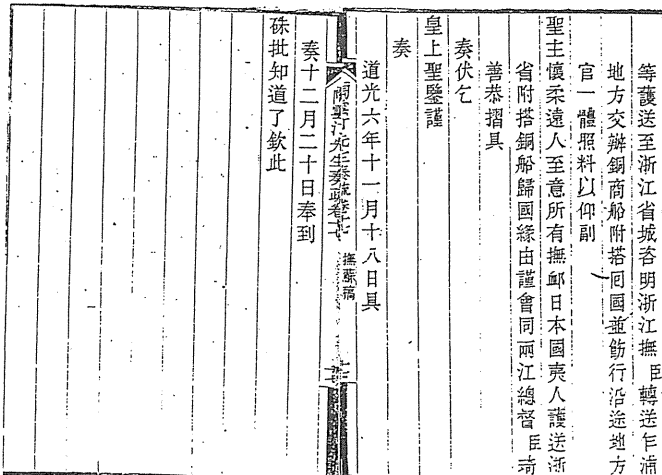 等護送至浙江省城咨明浙江撫臣轉送乍浦
地方交辦銅商船附搭囘國並飭行沿途地方
官一體照料以仰副
聖主懷柔遠人至意所有撫卹日本國夷人護送浙
省附搭銅船歸國緣由謹會同兩江總督臣琦
善恭摺具
奏伏乞
皇上聖鑒謹
奏
道光六年十一月十八日具
陶雲汀先生奏疏卷十七
撫蘇稿
奏十二月二十日奉到
硃批知道了欽此